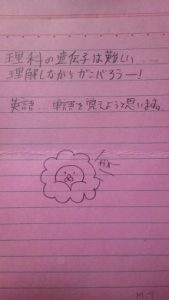 理科の遺伝子は難しい....
理解しながらガンバろうー!
英語...単語を覚えようと思います。